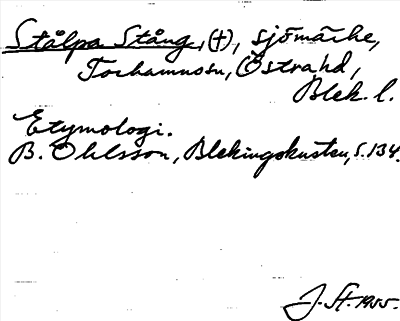 Stålpa Stång, (+), sjömärke,
Torhamnsn, Östrahd,
Blek. l.
Etymologi.
B. Ohlsson, Blekingskusten, s. 134.
J. St. 1955.